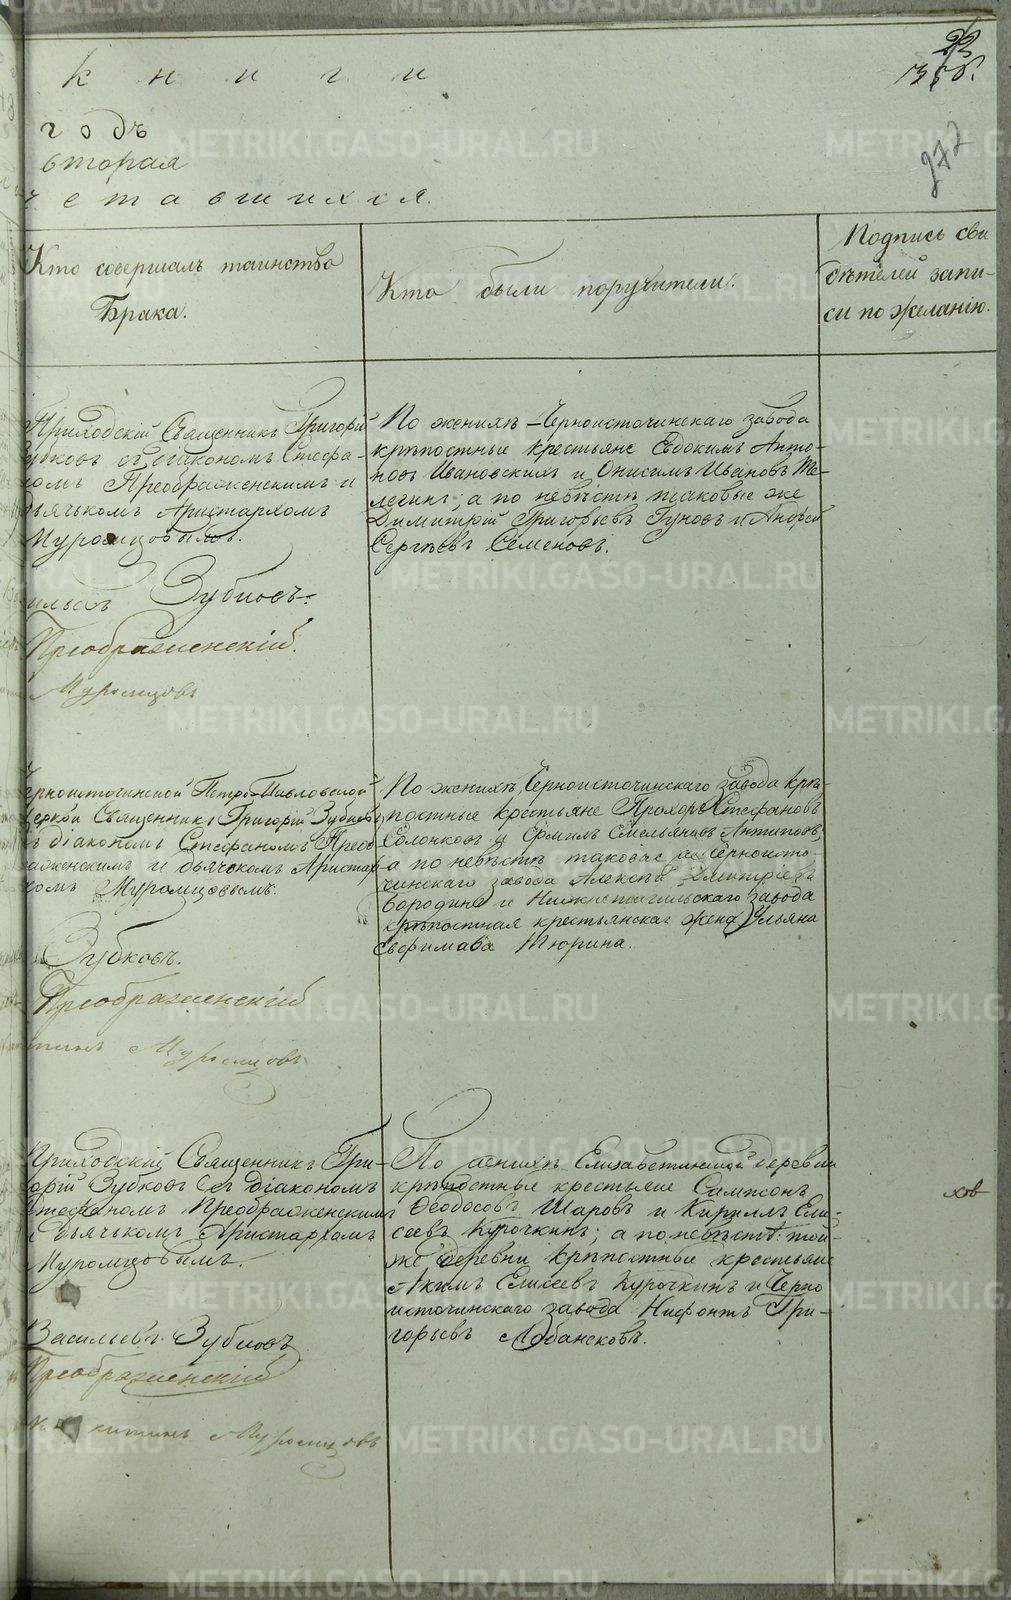 книги
23
годъ
вторая
четавшихся.
272
Кто совершалъ таинство
Брака.
Кто были поручители.
Подпись сви
дѣтелей запи-
си по желанію.
Приходскій Священникъ Григорій
Зубковъ съ діакономъ Стефа-
номъ Преображенскимъ и
дьячкомъ Аристархомъ
Муромцовымъ.
Зубковъ.
Преображенскій.
Муромцовъ
По женихѣ Черноисточинскаго завода
крѣпостные крестьяне Евдокимъ Анто-
новъ Ивановскихъ и Онисимъ Ивановъ Те-
легинъ; а по невѣстѣ таковые же
Димитрій Григорьевъ Гуновъ и Андрей
Сергѣевъ Семеновъ.
Черноисточинской Петро-Павловской
церкви Священникъ Григорій Зубковъ
съ діакономъ Стефаномъ Преоб
раженскимъ и дьячкомъ Аристар-
хомъ Муромцовымъ.
Зубковъ.
Преображенскій
Муромцовъ
По женихѣ, Черноисточинскаго завода крѣ-
постные крестьяне Прохоръ Стефановъ
Солонковъ и Ермилъ Емельяновъ Антиповъ,
а по невѣстѣ таковые же Черноисто-
чинскаго завода Алексѣй Димитріевъ
Бородинъ и Нижнетагильскаго завода
крѣпостная крестьянская жена Ульяна
Тюрина.
Приходскій Священникъ Гри-
горій Зубковъ съ діакономъ
Стефаномъ Преображенскимъ
и дьячкомъ Аристархомъ
Муромцовымъ.
Васильевъ Зубковъ
Преображенскій
Муромцовъ
По женихѣ Елизаветинской деревни
крѣпостные крестьяне Сампсонъ
Ѳеодосовъ Шаровъ и Кириллъ Ели-
сеевъ Курочкинъ; а по невѣстѣ той
же деревни крѣпостные крестьяне
Акимъ Елисеевъ Курочкинъ и Черно
источинскаго завода Нифонтъ Гри-
горьевъ Лобансковъ.
METRIKI.GASO-URAL.RU